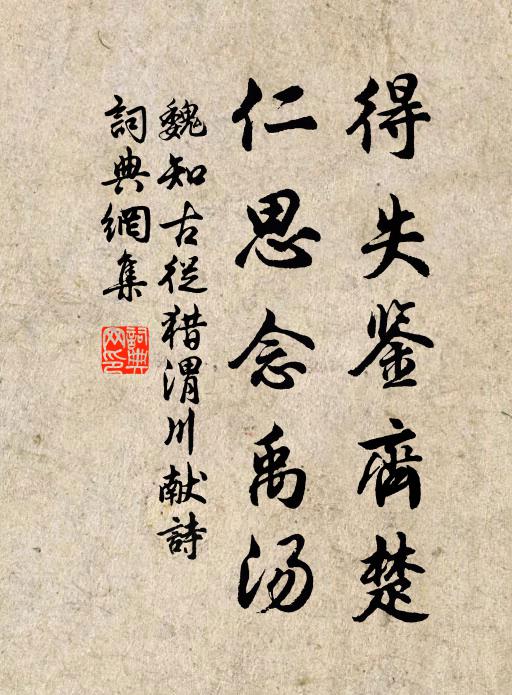 得失鉴齊楚
仁思念禹汤
魏知古從猎渭川献詩
詞典網集
詞典网印